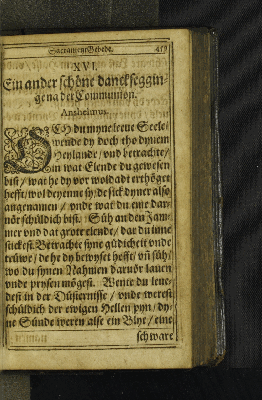 Sacrament Gebede. 419
XVI.
Ein ander schöne danckseggin-
ge na der Communion.
Anshelmus.
OCH du myne leue Seele
wende dy doch tho dynem
Heylande / vnd betrachte /
in wat Elende du gewesen
bist / wat he dy vor woldadt ertöget
hefft / wol deyenne sy / de sick dyner also
angenamen / vnde wat du eme dar-
uör schüldich bist. Süh an den Jam-
mer vnd dat grote elende / dar du inne
stickest. Betrachte syne güdicheit vnde
trüwe / de he dy bewyset hefft / vñ süh /
wo du synen Nahmen daruör lauen
vnde prysen mögest. Wente du leue-
dest in der Düsternisse / vnde werest
schüldich der ewigen Hellen pyn / dy-
ne Sünde weren alse ein Blyt / eine
schware